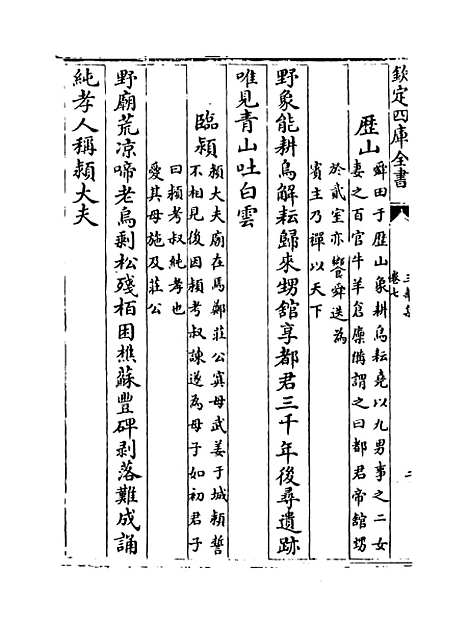 欽定四庫全書
卷七
二
歴山
舜田于歴山象耕鳥耘堯以九男事之二女
妻之百官牛羊倉廩備謂之曰都君帝舘甥
於貳室亦饗舜迭為
賓主乃禪以天下
野象能耕鳥解耘歸來甥舘享都君三千年後尋遺跡
唯見青山吐白雲
臨潁
潁大夫廟在焉鄭莊公寘母武姜于城潁誓
不相見後因潁考叔諫遂為母子如初君子
曰潁考叔純孝也
愛其母施及莊公
野廟荒凉啼老烏剩松殘栢困樵蘇豐碑剥落難成誦
純孝人稱潁大夫